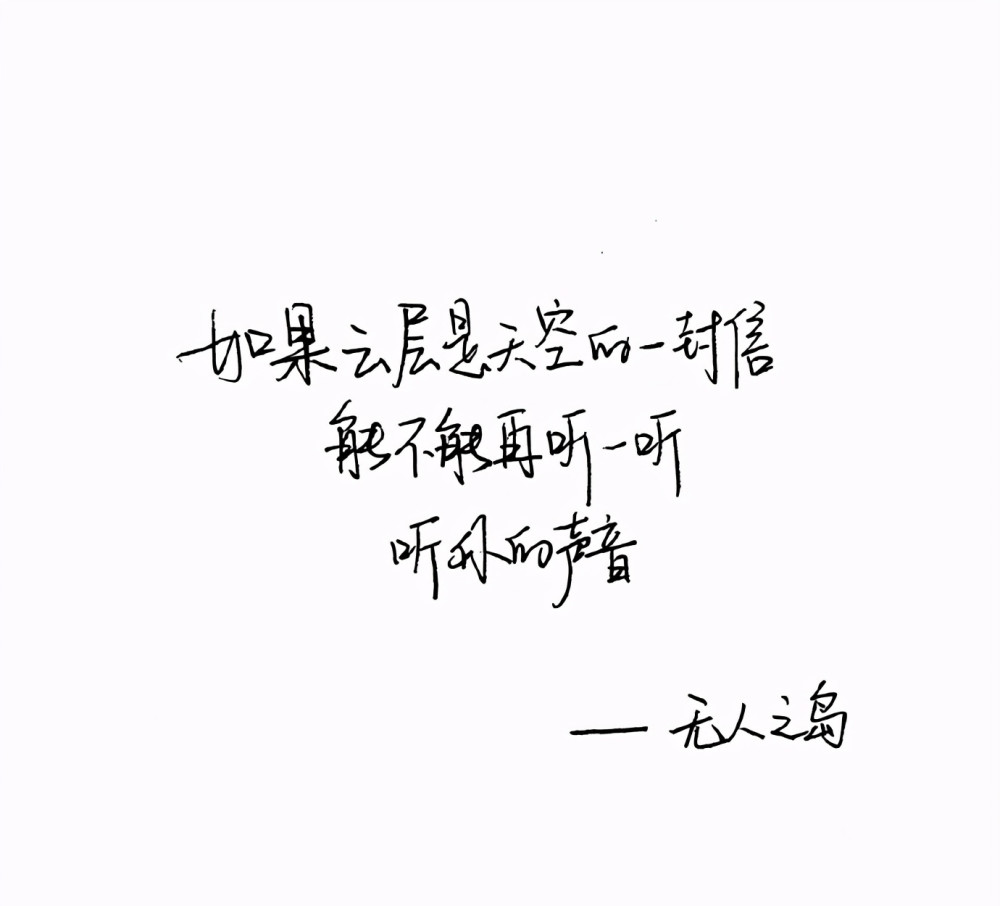 如果云层是天空的一封信
能不能再听一听
听你的声音
——无人之岛